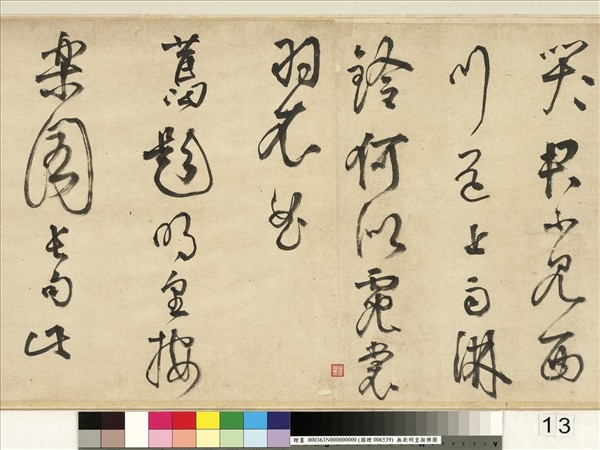 哭君不見西
川道上雨淋
鈴何似霓裳
羽衣曲
舊題明皇按
樂圖長句此
贈畫 000363N000000000 (國贈 006539) 無款明皇按樂圖
13